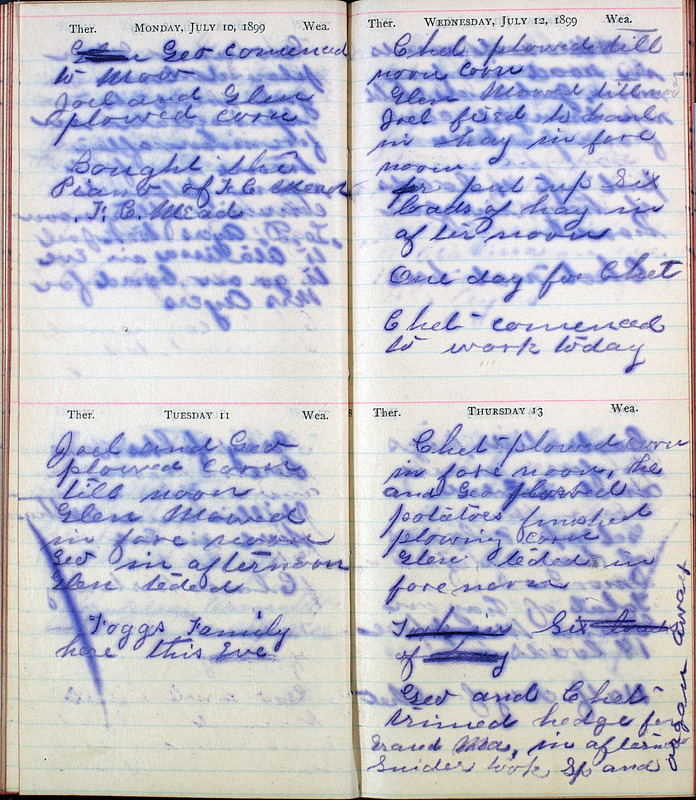 Ther. MONDAY, JULY 10, 1899 Wea.
Geo comenced
to mow
Joel and Glen
plowed corn
Bought the
Piano of F. C. Mead
F. C. Mead
Ther. TUESDAY 11 Wea.
Joel and Geo
plowed corn
till noon
Glen Mowed
in fore noon
Geo in afternoon
Glen teded
Foggs Family
here this Eve
Ther. WEDNESDAY, JULY 12, 1899 Wea.
Chet plowed till
noon corn
Glen Mowed till noon
Joel fixed to haul
in hay in fore
noon
put up Six
loads of hay in
after noon
One day for Chet
Chet comenced
to work today
Ther. THURSDAY 13 Wea.
Chet plowed corn
in fore noon, he
and Geo plowed
potatoes finished
plowing corn
Glen teded in
fore noon
Six
of
Geo and Chet
trimed hedge for
Grand Ma, in afternoon
Snider took Sp and
organ away